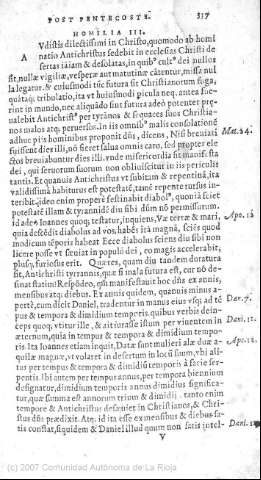 POST PENTECOSTĒ. 317
HOMILIA III.
A Vdistis dilectissimi in Christo, quomodo ab homi
natio Antichristus sedebit in ecclesias Christi de
sertas iā iam & desolatas, in quib⁹ cult⁹ dei nullos
sit, nullæ vigiliæ, vesperæ aut matutinæ cātentur, missa nul
la legatur. & cuiusmodi tūc futura sit Christianorum fuga,
quātaq; tribulatio, ita vt huiusmodi picula neq; antea fue-
rint in mundo, nec aliquādo sint futura adeō potenter præ-
ualebit Antichrist⁹ per tyrānos & sequaces suos Christia-
nos malos atq; peruersos. In iis omnib⁹ malis consolationē
adhuc piis hominibus proponit dn̄s, dicens, Nisi breuiati Mat. 24.
fuissent dies illi, nō fieret saluus omnis caro, sed propter ele
ctos breuiabuntur dies illi. vnde misericordia sit manifesta
dei, qui seruorum suorum non obliuiscitur in iis periculis
tantis. Et quamuis Antichristus vt subitam & repentinā, ita
validissimā habiturus est potestatē, tamē repente rursus in-
teribit. ideo enim properè festinabit diabol⁹, quoniā sciet
potestatē illam & tyrannidē diu sibi dūm nō permissorum.
id adeò Ioannes quoq; testatur, inquiens, Væ terræ & mari, Apo. 12
quia descēdit diabolus ad vos, habēs irā magnā, sciēs quod
modicum tēporis habeat Ecce diabolus sciens diu sibi non
licere posse vt seuiat in populū dei, eo magis accelerabit,
plusq; furiosus erit. Quæres, quam diu tandem duratura
sit, Antichristi tyrannis, quæ si mala futura est, cur nō de-
sinat statim? Respōdeo, qd manifestauit hoc dn̄s ex annis,
mensibus atq; diebus. Ex annis quidem, quamuis minus a-
pertè, cum dicit Daniel, tradentur in manus eius vsq; ad tē Dar. 7.
pus & tempora & dimidium temporis. quibus verbis dein-
ceps quoq; vtitur ille, & ait iurasse istum per viuentem in Dani. 12.
æternum, quia in tempus & tempora & dimidium tempo-
ris. Ita Ioannes etiam inquit, Datæ sunt mulieri alæ duæ a- Apo. 12.
quilæ magnæ, vt volaret in desertum in locū suum, vbi ali-
tur per tempus & tempora & dimidiū temporis à facie ser-
pentis. sibi autem per tempus annus, per tempora biennium
designatur, dimidium tempora annus dimidius significa-
tur, quæ summa est annorum trium & dimidij. tanto enim
tempore & Antichristus desæuiet in Christianos, & Chri-
stus dn̄s prædixit. Atq; id ita esse ex mensibus & diebus sa-
tis constat, siquidem & Daniel illud quum non satis intel- Dani. 12
V
(c) 2007 Comunidad Autónoma de La Rioja